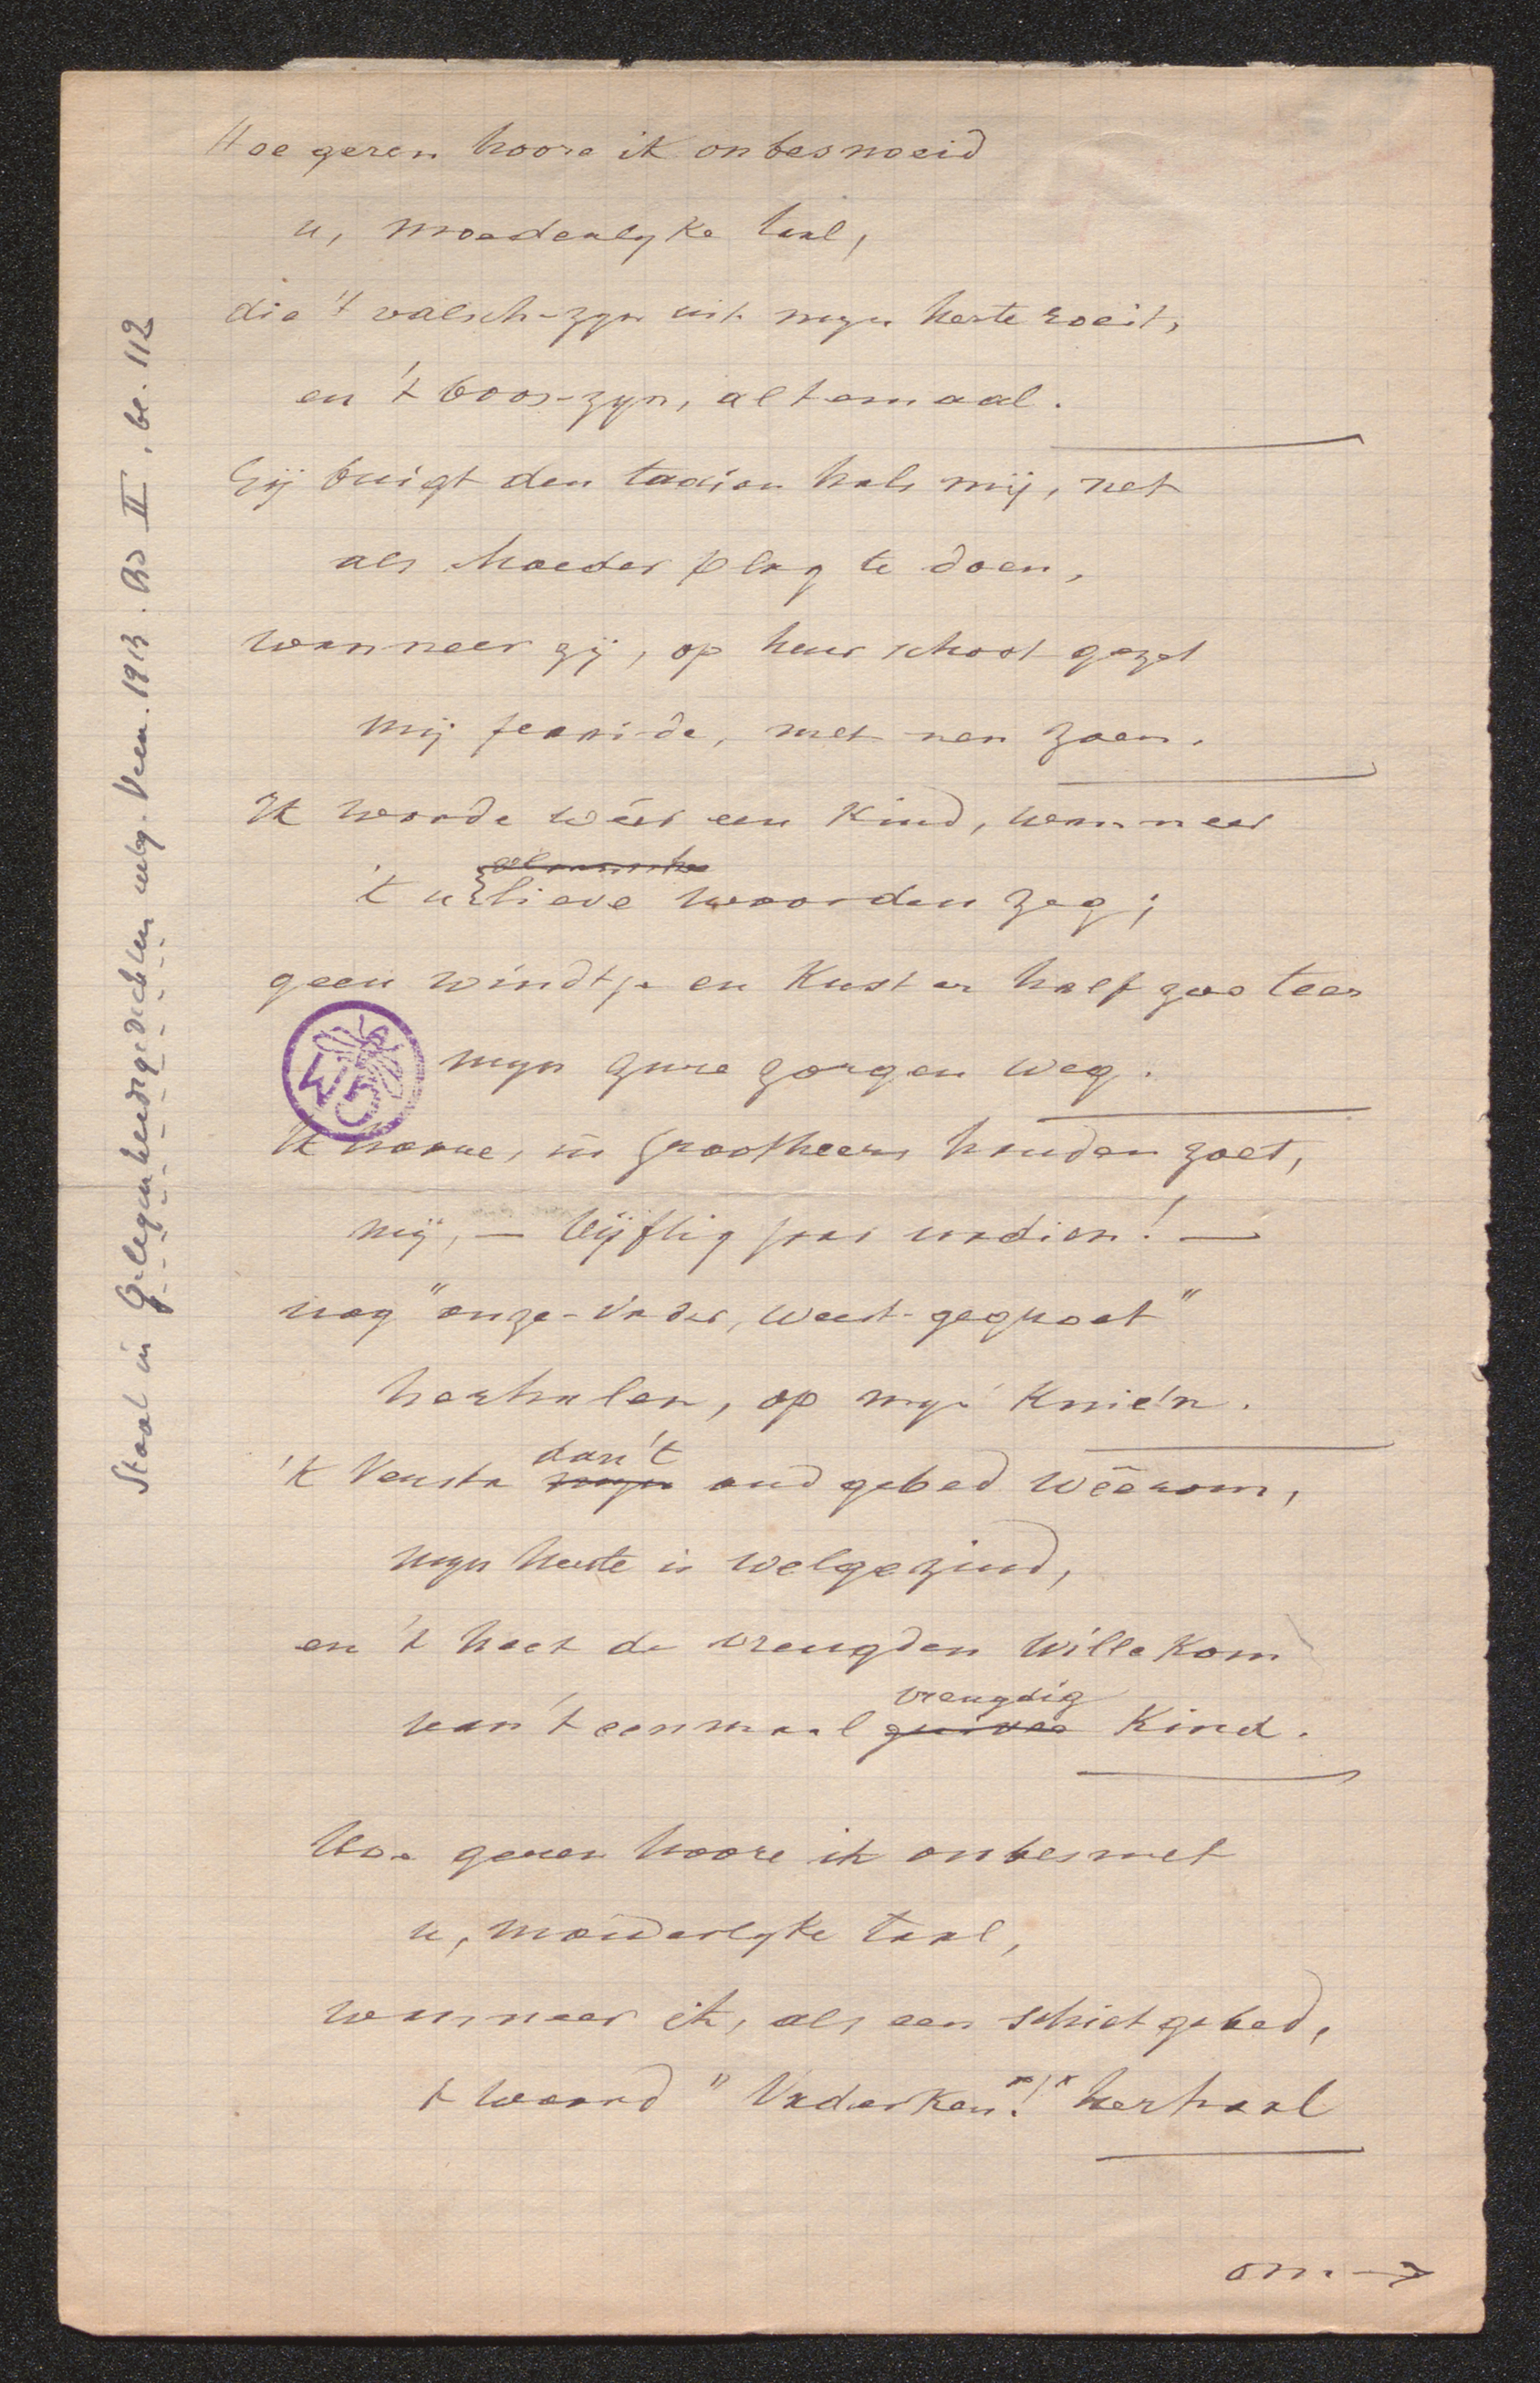 Hoe geren hoore ik onbesnoeid
u, moederlyke taal,
die 't valsch-zyn uit myn herte roeit,
en 't boos-zyn, altemaal.
Gij buigt den taaien hals mij, net
als Moeder plag te doen,
wanneer zij, op heur schoot gezet
mij paaide, met nen zoen.
Ik worde wéér een Kind, wanneer
vlaamsche
'k u lieve woorden zeg;
geen windtje en Kust er half zoo teer
myn gure zorgen weg.
Ik hoore, in Grootheers handen zoet,
mij, — vijftig jaar nadien! —
nog "onze-Vader, weest-gegroet"
herhalen, op myn Knie'n.
dan 't
'k Veuste myn oud gebed wéérom,
myn herte is welgezind,
en 't heet de vreugden willekom
vreugdig
van 't eenmaal zuiver Kind.
Hoe geren hoore ik onbesmet
u, moederlyke taal,
wanneer ik, als een schietgebed,
't woord "Vaderken!" herhaal
om. →
Staat in Gelegenheidsgedichten uitg. Veen. 1913. Bd II, bl. 112
WG